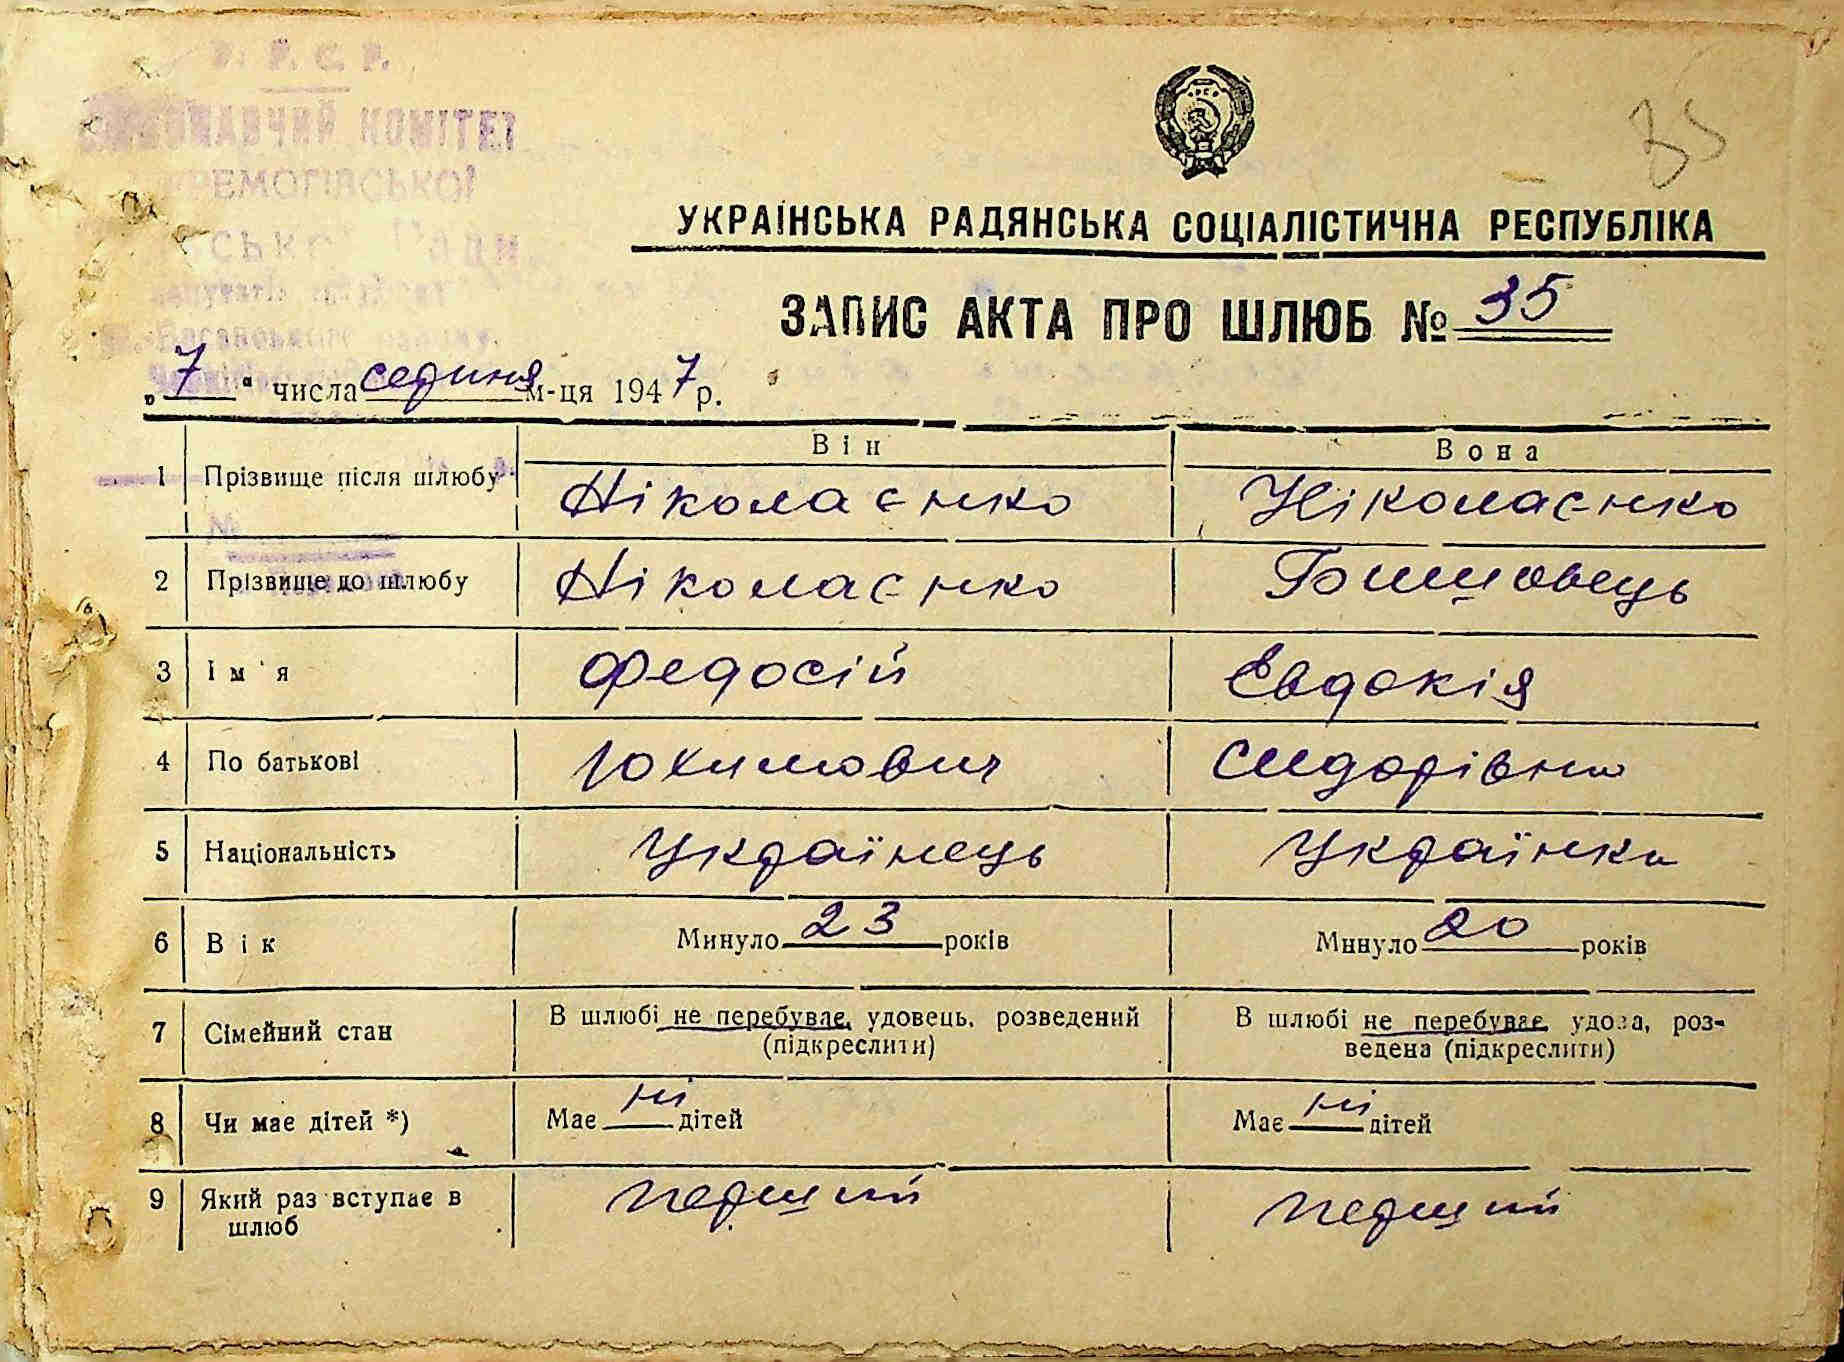 У. Р. С. Р.
ВИКОНАВЧИЙ КОМІТЕТ
35
УКРАЇНСЬКА РАДЯНСЬКА СОЦІАЛІСТИЧНА РЕСПУБЛІКА
ЗАПИС АКТА ПРО ШЛЮБ № 35
„7“ числа серпня м-ця 1947 р.
Він Вона
1 Прізвище після шлюбу Ніколаєнко Ніколаєнко
2 Прізвище до шлюбу Ніколаєнко
3 Ім'я Федосій Евдокія
4 По батькові Юхимович Сидорівна
5 Національність Українець Українка
6 Вік Минуло 23 років Минуло 20 років
7 Сімейний стан В шлюбі не перебуває, удовець, розведений В шлюбі не перебуває, удова, роз-
(підкреслити) ведена (підкреслити)
8 Чи має дітей *) Має ні дітей Має ні дітей
9 Який раз вступає в перший перший
шлюб